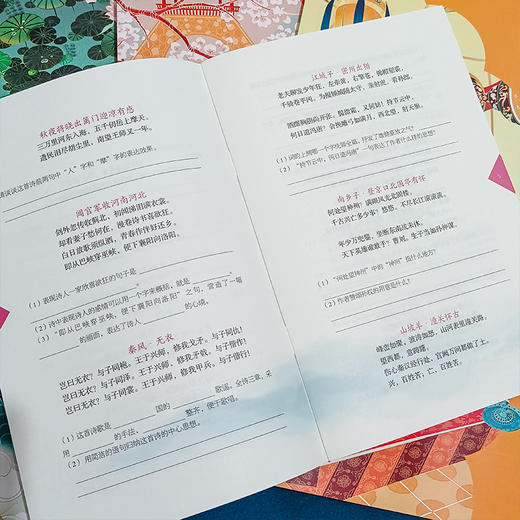 秋夜将晓出篱门迎凉有感
三万里河东入海，五千仞岳上摩天。
遗民泪尽胡尘里，南望王师又一年。
谈谈这首诗前两句中“入”字和“摩”字的表达效果。
闻官军收河南河北
剑外忽传收蓟北，初闻涕泪满衣裳。
却看妻子愁何在，漫卷诗书喜欲狂。
白日放歌须纵酒，青春作伴好还乡。
即从巴峡穿巫峡，便下襄阳向洛阳。
（1）表现诗人一家欣喜欲狂的句子是
（2）诗中表现诗人的感情可以用一个字来概括，就是
（3）“即从巴峡穿巫峡，便下襄阳向洛阳”之句，营造了一幅
的画面，表达了诗人 的心境。
秦风·无衣
岂曰无衣？与子同袍。王于兴师，修我戈矛。与子同仇！
岂曰无衣？与子同泽。王于兴师，修我矛戟。与子偕作！
岂曰无衣？与子同裳。王于兴师，修我甲兵。与子偕行！
（1）这首诗歌是 国的 歌谣。全诗三章，采
用 的手法， 整齐，便于歌唱。
（2）用简洁的语句归纳这首诗的中心思想。
江城子·密州出猎
老夫聊发少年狂，左牵黄，右擎苍，锦帽貂裘，
千骑卷平冈。为报倾城随太守，亲射虎，看孙郎。
酒酣胸胆尚开张，鬓微霜，又何妨！持节云中，
何日遣冯唐？会挽雕弓如满月，西北望，射天狼。
（1）词的上阕哪一个字统领全篇，抒发了雄劲豪放之气？
（2）“持节云中，何日遣冯唐”一句表达了作者什么样的思想？
南乡子·登京口北固亭有怀
何处望神州？满眼风光北固楼。
千古兴亡多少事？悠悠。不尽长江滚滚流。
年少万兜鍪，坐断东南战未休。
天下英雄谁敌手？曹刘。生子当如孙仲谋。
（1）“何处望神州”中的“神州”是什么地方？
（2）作者赞颂孙权的用意是什么？
山坡羊·潼关怀古
峰峦如聚，波涛如怒，山河表里潼关路。
望西都，意踌躇。
伤心秦汉经行处，宫阙万间都做了土。
兴，百姓苦；亡，百姓苦。